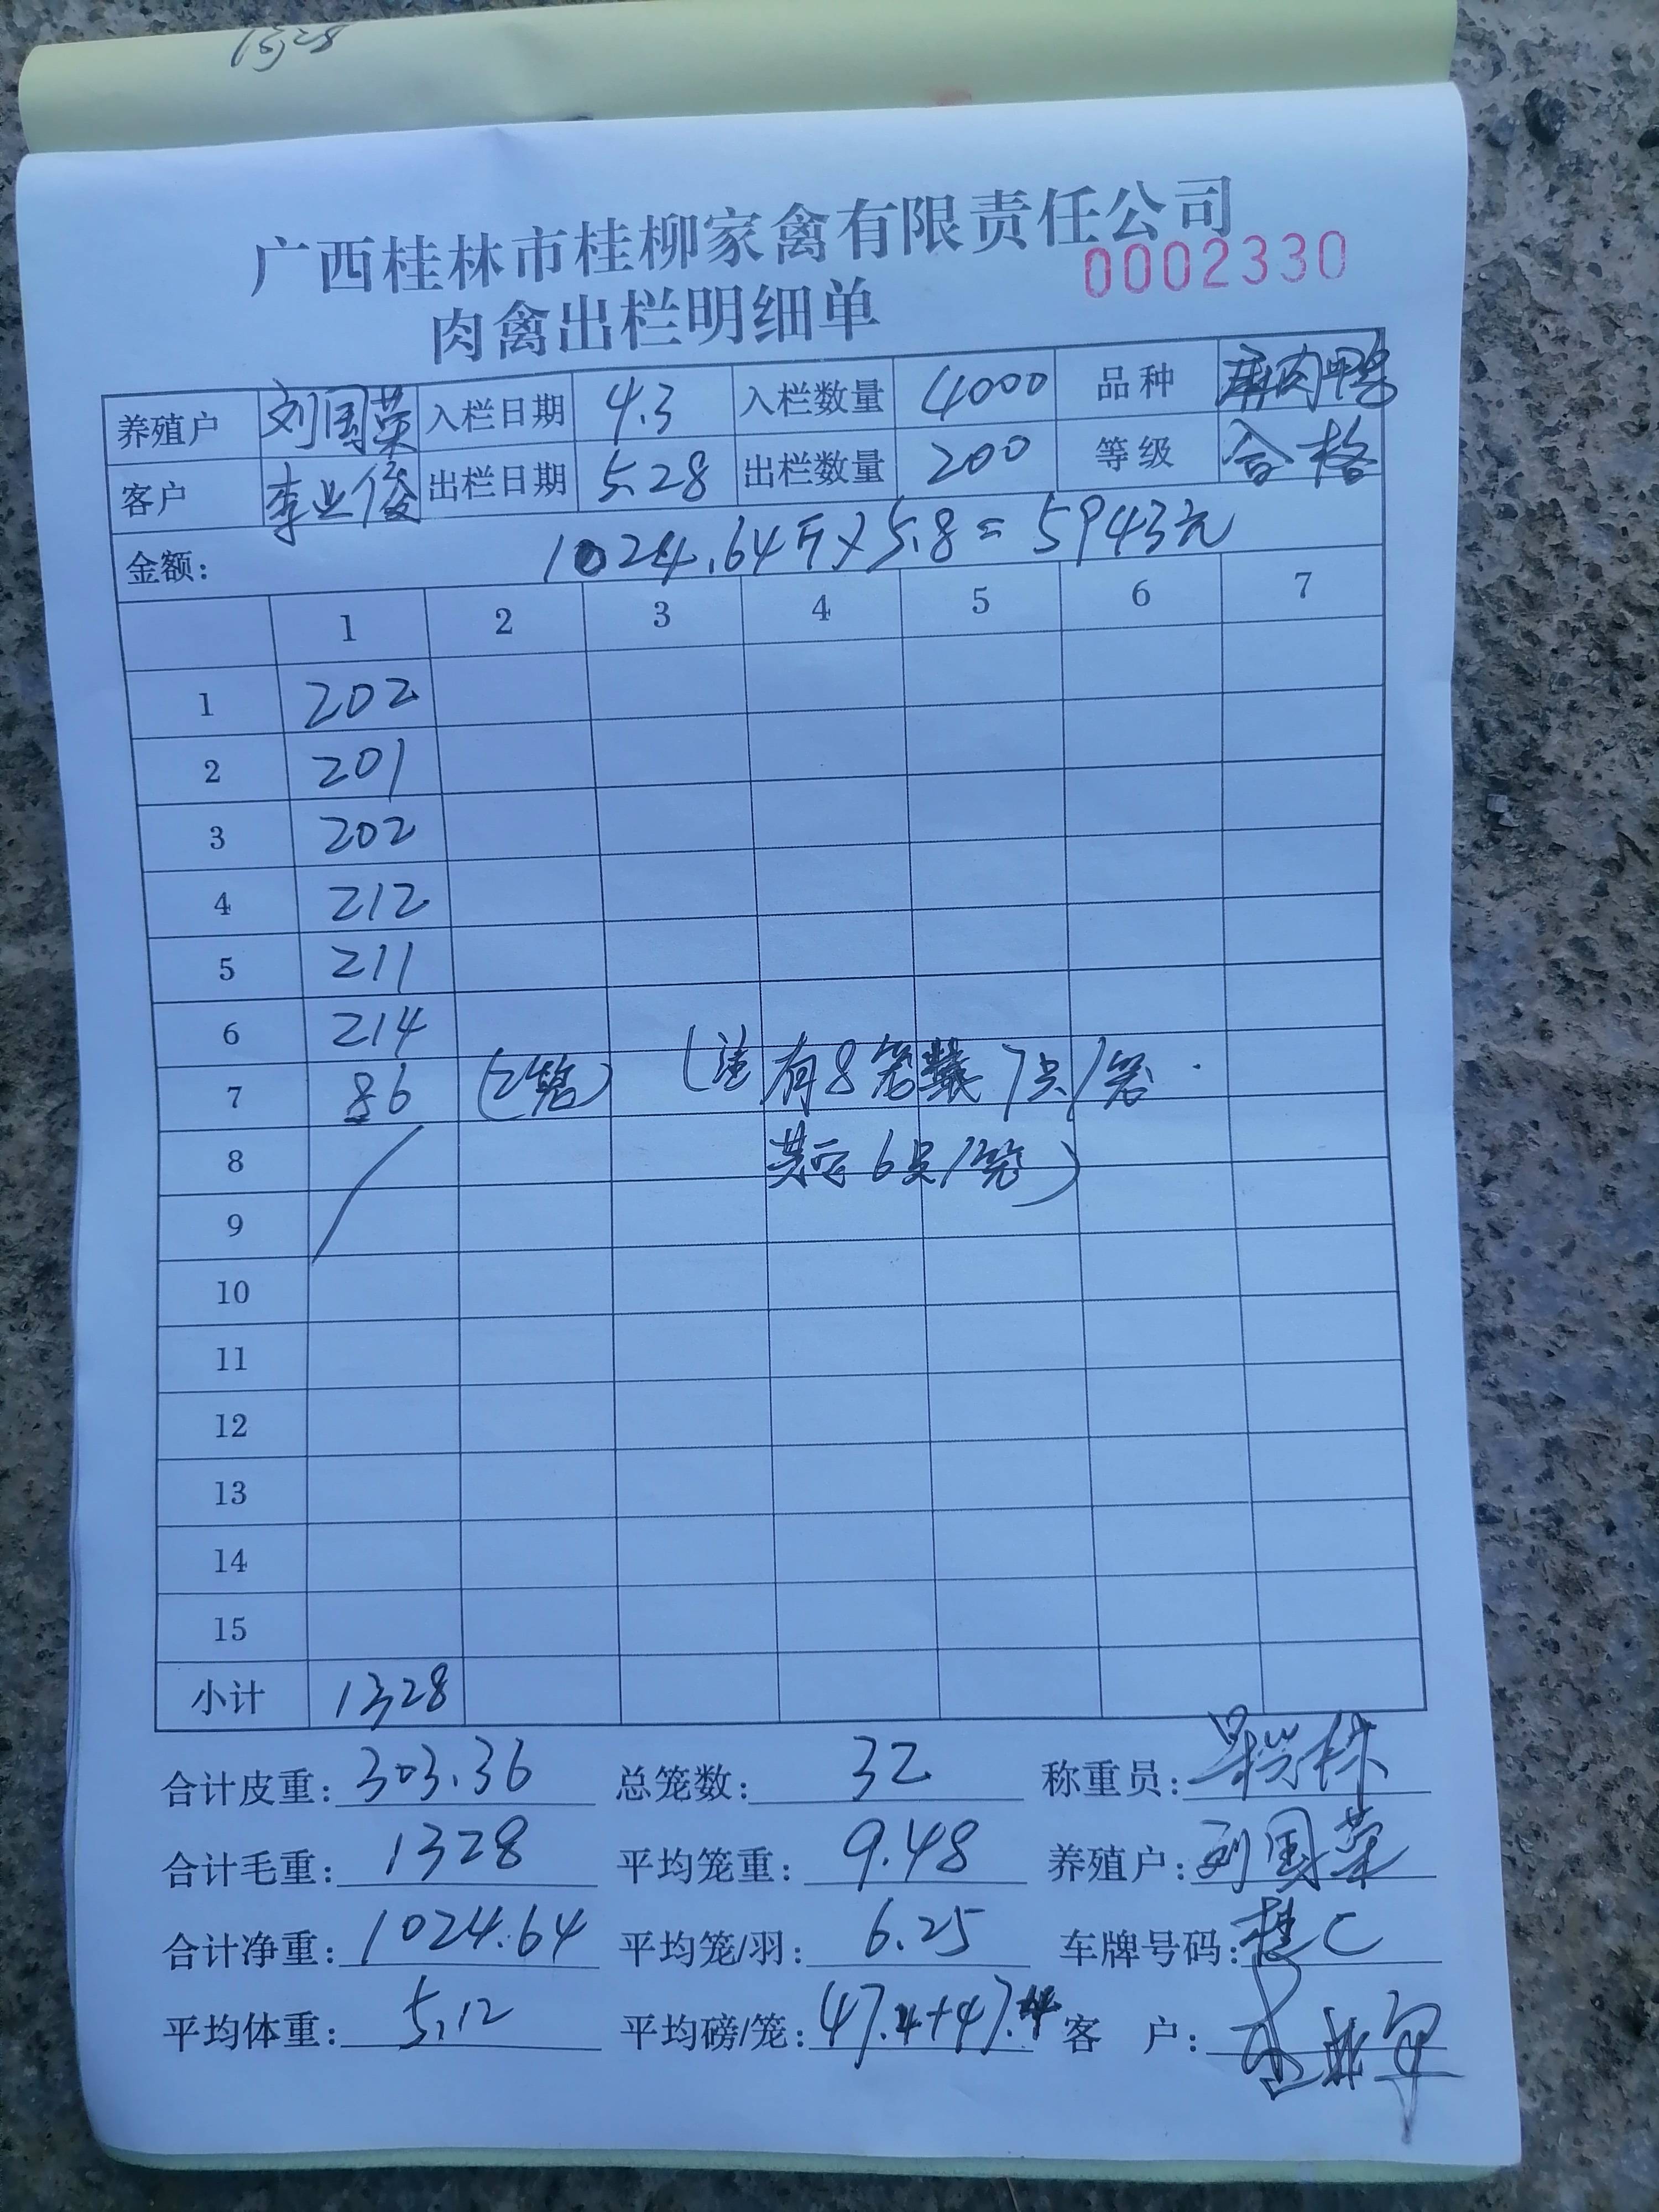 1328
广西桂林市桂柳家禽有限责任公司
0002330
肉禽出栏明细单
养殖户 刘国英 入栏日期 4.3 入栏数量 4000 品种 麻肉鸭
客户 李业俊 出栏日期 5.28 出栏数量 200 等级 合格
金额: 1024.64斤×5.8=5943元
1 2 3 4 5 6 7
1 202
2 201
3 202
4 212
5 211
6 214
7 86 (2笼) (注有8笼装7只/笼
8 其示6只/笼)
9
10
11
12
13
14
15
小计 1328
合计皮重: 303.36 总笼数: 32 称重员:
合计毛重: 1328 平均笼重: 9.48 养殖户: 刘国荣
合计净重: 1024.64 平均笼/羽: 6.25 车牌号码: 桂C
平均体重: 5.12 平均磅/笼: 47.4+47.4 客户: